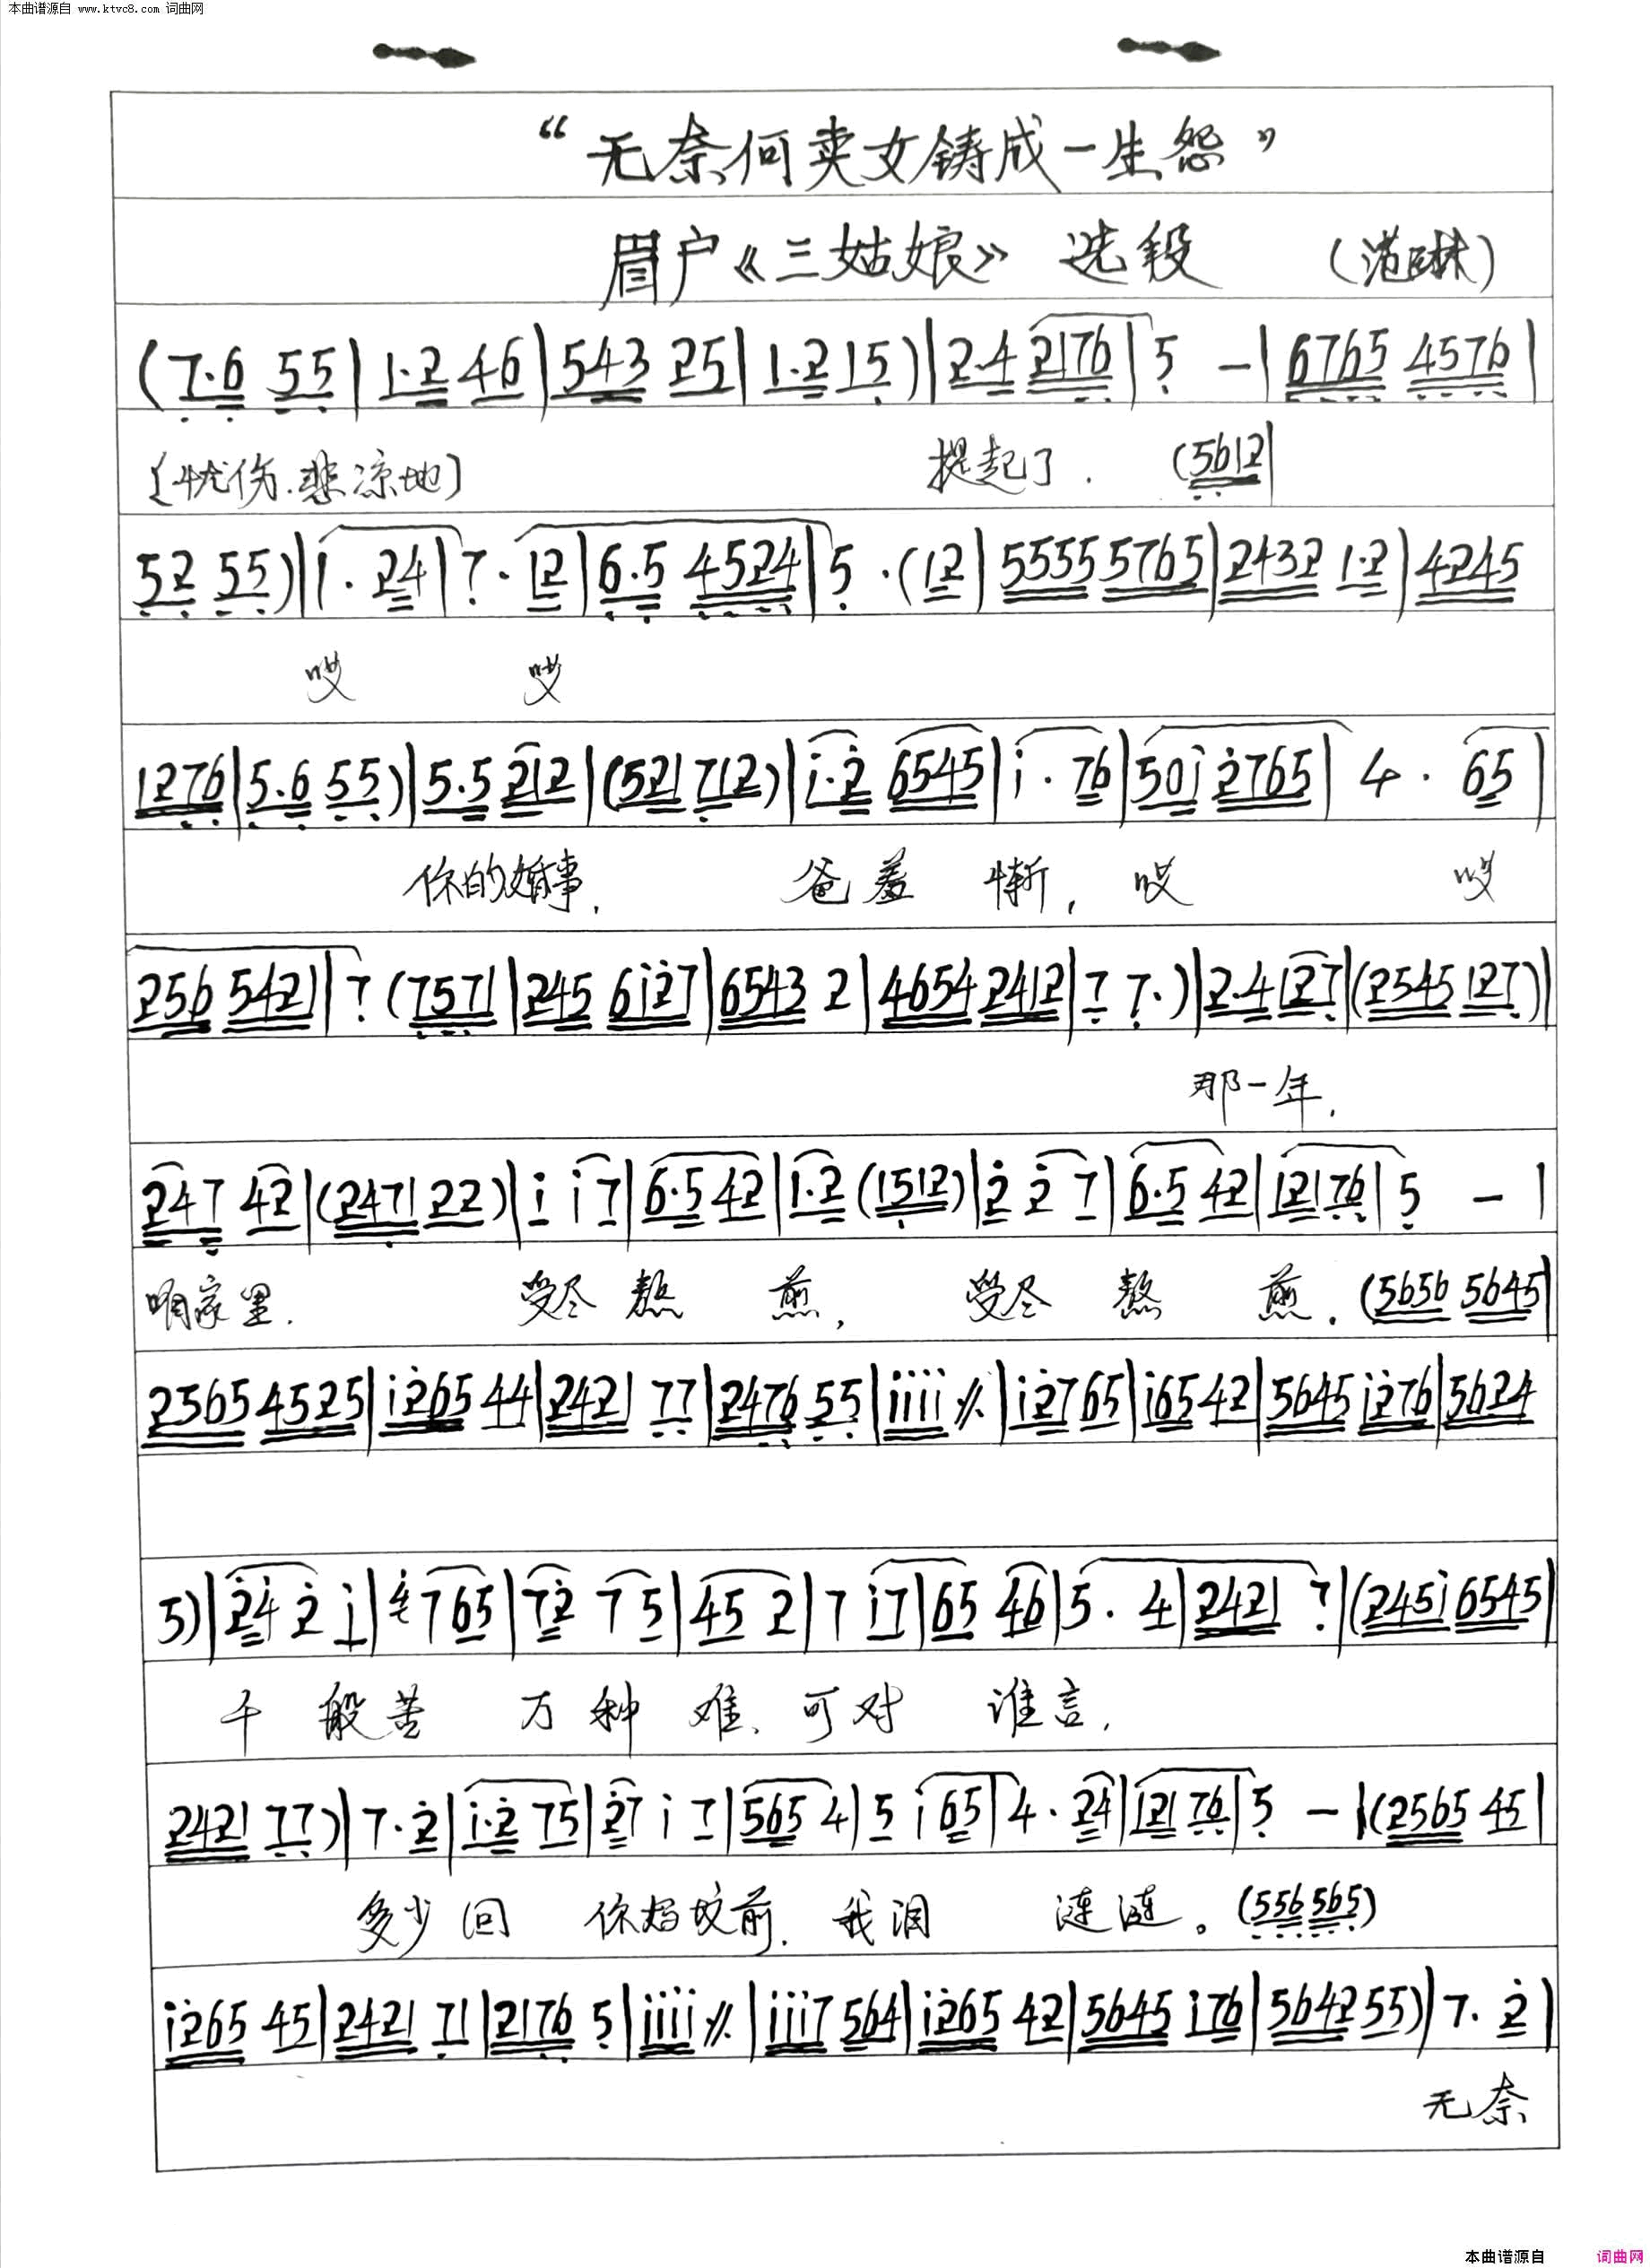 本曲谱源自 www.ktvc8.com 词曲网
“无奈何卖女铸成一生怨”
眉户《三姑娘》 选段 (范琳)
(7·6 55|1·2 46|543 25|1·2 15)|2·4 2176|5 -|6765 4576|
{忧伤.悲凉地} 提起了. (5612|
52 55)|1·24|7·12|6·5 4524|5·(12|5555 5765|2432 1·2|4245
哎 哎
1276|5·6 55)|5·5 212|(521 712)|i·2 6545|i·76|50i 2765|4·65|
你的婚事. 爸羞惭, 哎 哎
256 5421|7(7571|245 6i27|6543 2|4654 2412|7 7·)|2·4 127|(2545 127)|
那一年.
247 42|(2471 22)|i i7|6·5 42|1·2(1512)|2 2 7|6·5 42|12176|5 -|
咱家里. 受尽熬煎, 受尽熬煎. (5656 5645|
2565 4525|i265 44|2421 77|2476 55|iiii ⁒|i2765|i6542|5645 i276|5624
5)|24 2 i|4765|72 75|45 2|7 i7|65 46|5·4|2421 7|(245i 6545|
千般苦 万种难、可对谁言,
2421 77)|7·2|i·2 75|27 i 7|565 4|5 i 65|4·24|121 76|5 -|(2565 45|
多少回 你妈坟前. 我泪涟涟。(556 565)
i265 45|2421 71|2176 5|iiii ⁒|iii7 564|i265 42|5645 i76|5642 55)|7·2|
无奈
本曲谱源自 词曲网